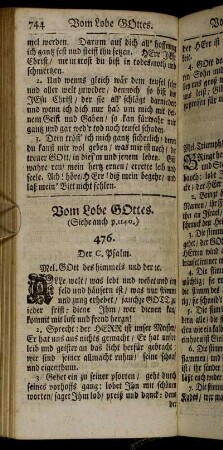 744 Vom Lobe GOttes.
mel werden. Darum auf dich all' hoffnung
ich gantz fest und steiff thu setzen. HErr JEsu
Christ, mein trost du bist in todes-noth und
schmertzen.
2. Und wenns gleich wär dem teufel leid
und aller welt zuwider, dennoch so bist du
JEsu Christ, der sie all' schlägt darnieder
und wenn ich dich nur hab um mich mit dei-
nem Geist und Gaben, so kan fürwahr mir
gantz und gar wed'r tod noch teufel schaden.
3. Dein tröst' ich mich gantz sicherlich, denn
du kanst mir wohl geben, was mir ist noth, du
treuer GOtt, in dies'm und jenem leben. Gib
wahre reu mein hertz erneu, errette leib und
seele. Ach! höre, HErr, diß mein begehr, und
laß mein' Bitt nicht fehlen.
Vom Lobe GOttes.
(Siehe auch p. 1140.)
476.
Der C. Psalm.
Mel. GOtt des himmels und der ꝛc.
ALle welt, was lebt und webet und in
feld und häusern ist, was nur stimm
und zung erhebet, jauchze GOTT zu
jeder frist: diene Ihm, wer dienen kan,
kommt mit lust und freud heran!
2. Sprecht: der HERR ist unser Meister,
Er hat uns aus nichts gemacht, Er hat unsre
leib und geister an das licht herfür gebracht:
wir sind seiner allmacht ruhm, seine schaaf
und eigenthum.
3. Gehet ein zu seiner pforten, geht durch
seines vorhoffs gang: lobet Ihn mit schönen
worten, saget Ihm lob, preiß und danck: denn
der